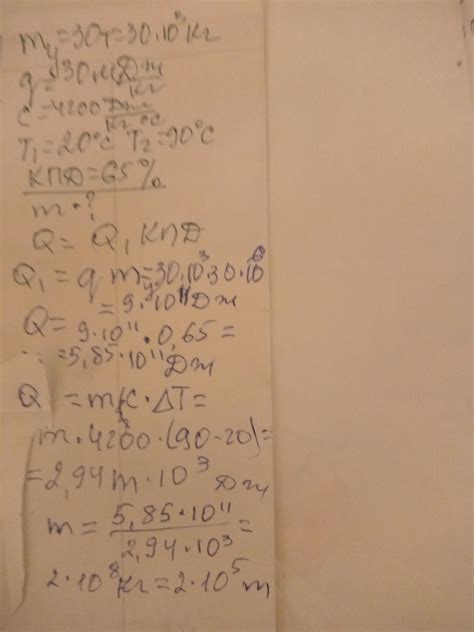 mу=30т=30·10³кг
q=30МДж/кг
c=4200Дж/кг°C
T₁=20°C T₂=90°C
КПД=65%
m-?
Q= Q₁ КПД
Q₁= q mу=30·10³·30·10⁶
=9·10¹¹Дж
Q=
9·10¹¹·0,65=
=5,85·10¹¹Дж
Q =mC·ΔT=
m·4200·(90-20)=
=2,94m·10³ Дж
m= 5,85·10¹¹/2,94·10³=
2·10⁸кг=2·10⁵т